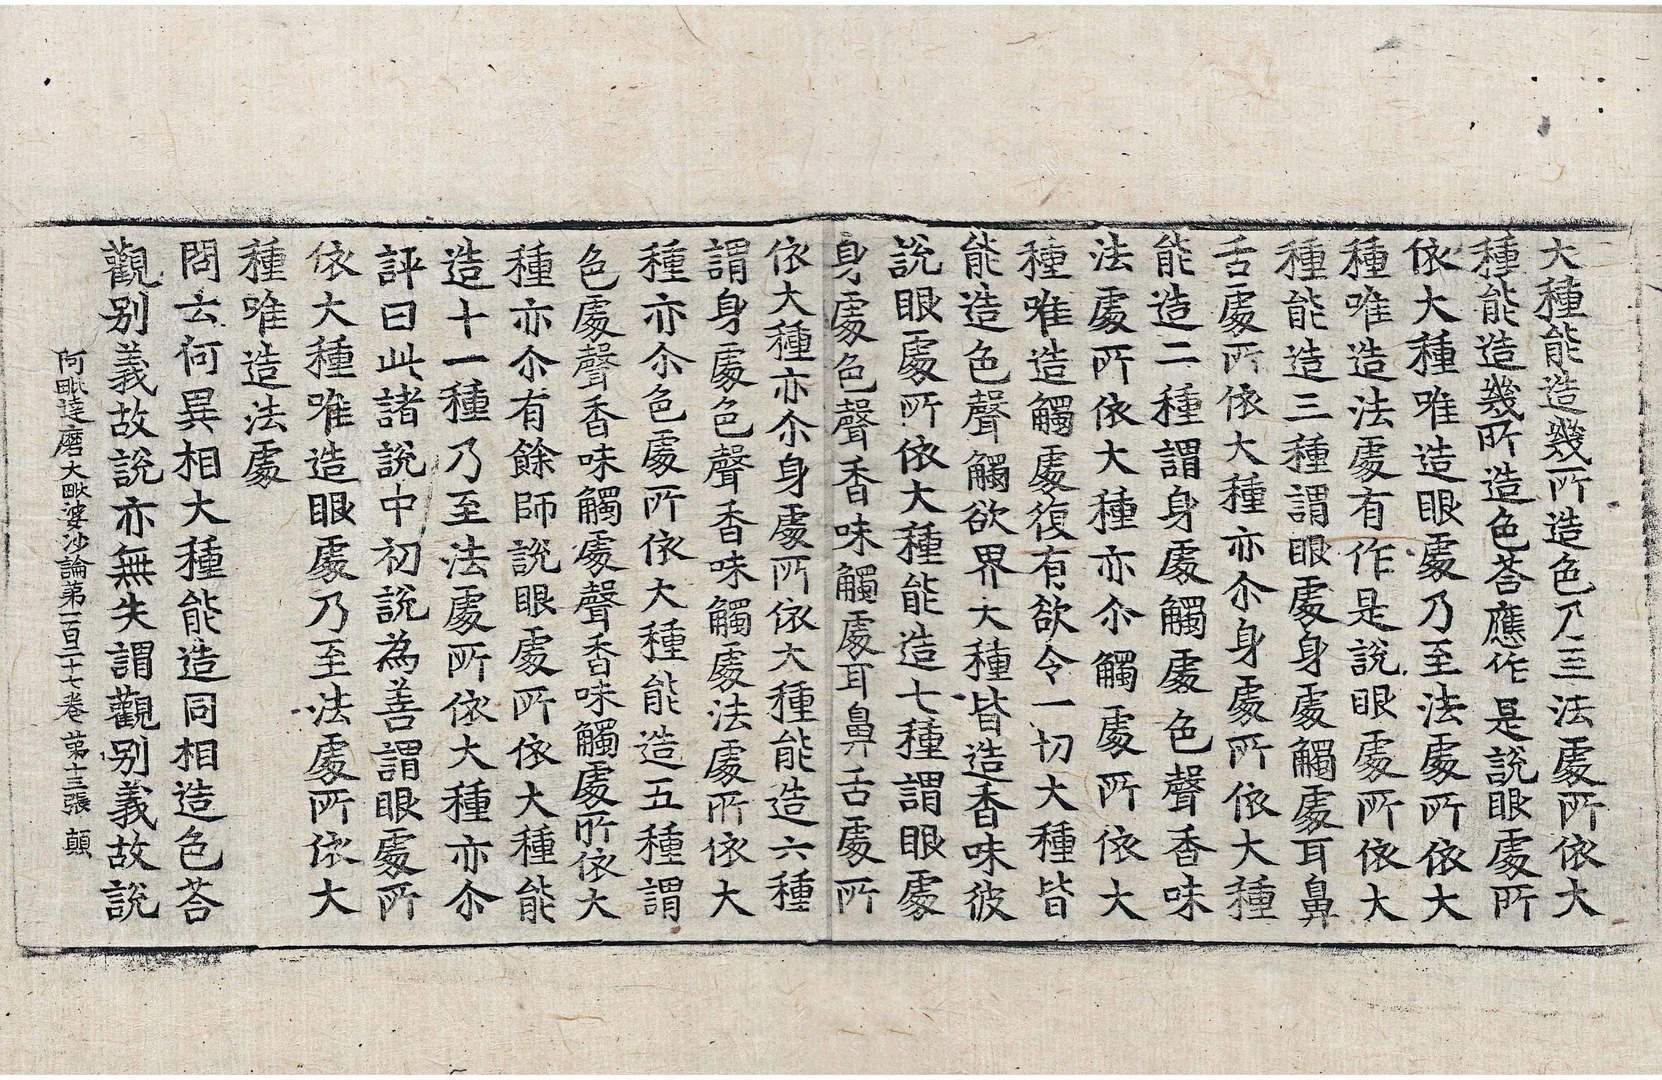 大種能造幾所造色乃至法處所依大
種能造幾所造色荅應作是說眼處所
依大種唯造眼處乃至法處所依大
種唯造法處有作是說眼處所依大
種能造三種謂眼處身處觸處耳鼻
舌處所依大種亦尒身處所依大種
能造二種謂身處觸處色聲香味
法處所依大種亦尒觸處所依大
種唯造觸處復有欲令一切大種皆
能造色聲觸欲界大種皆造香味彼
說眼處所依大種能造七種謂眼處
身處色聲香味觸處耳鼻舌處所
依大種亦尒身處所依大種能造六種
謂身處色聲香味觸處法處所依大
種亦尒色處所依大種能造五種謂
色處聲香味觸處聲香味觸處所依大
種亦尒有餘師說眼處所依大種能
造十一種乃至法處所依大種亦尒
評曰此諸說中初說為善謂眼處所
依大種唯造眼處乃至法處所依大
種唯造法處
問云何異相大種能造同相造色荅
觀別義故說亦無失謂觀別義故說
阿毗達磨大毗婆沙論第一百二十七卷 第十三張 顛